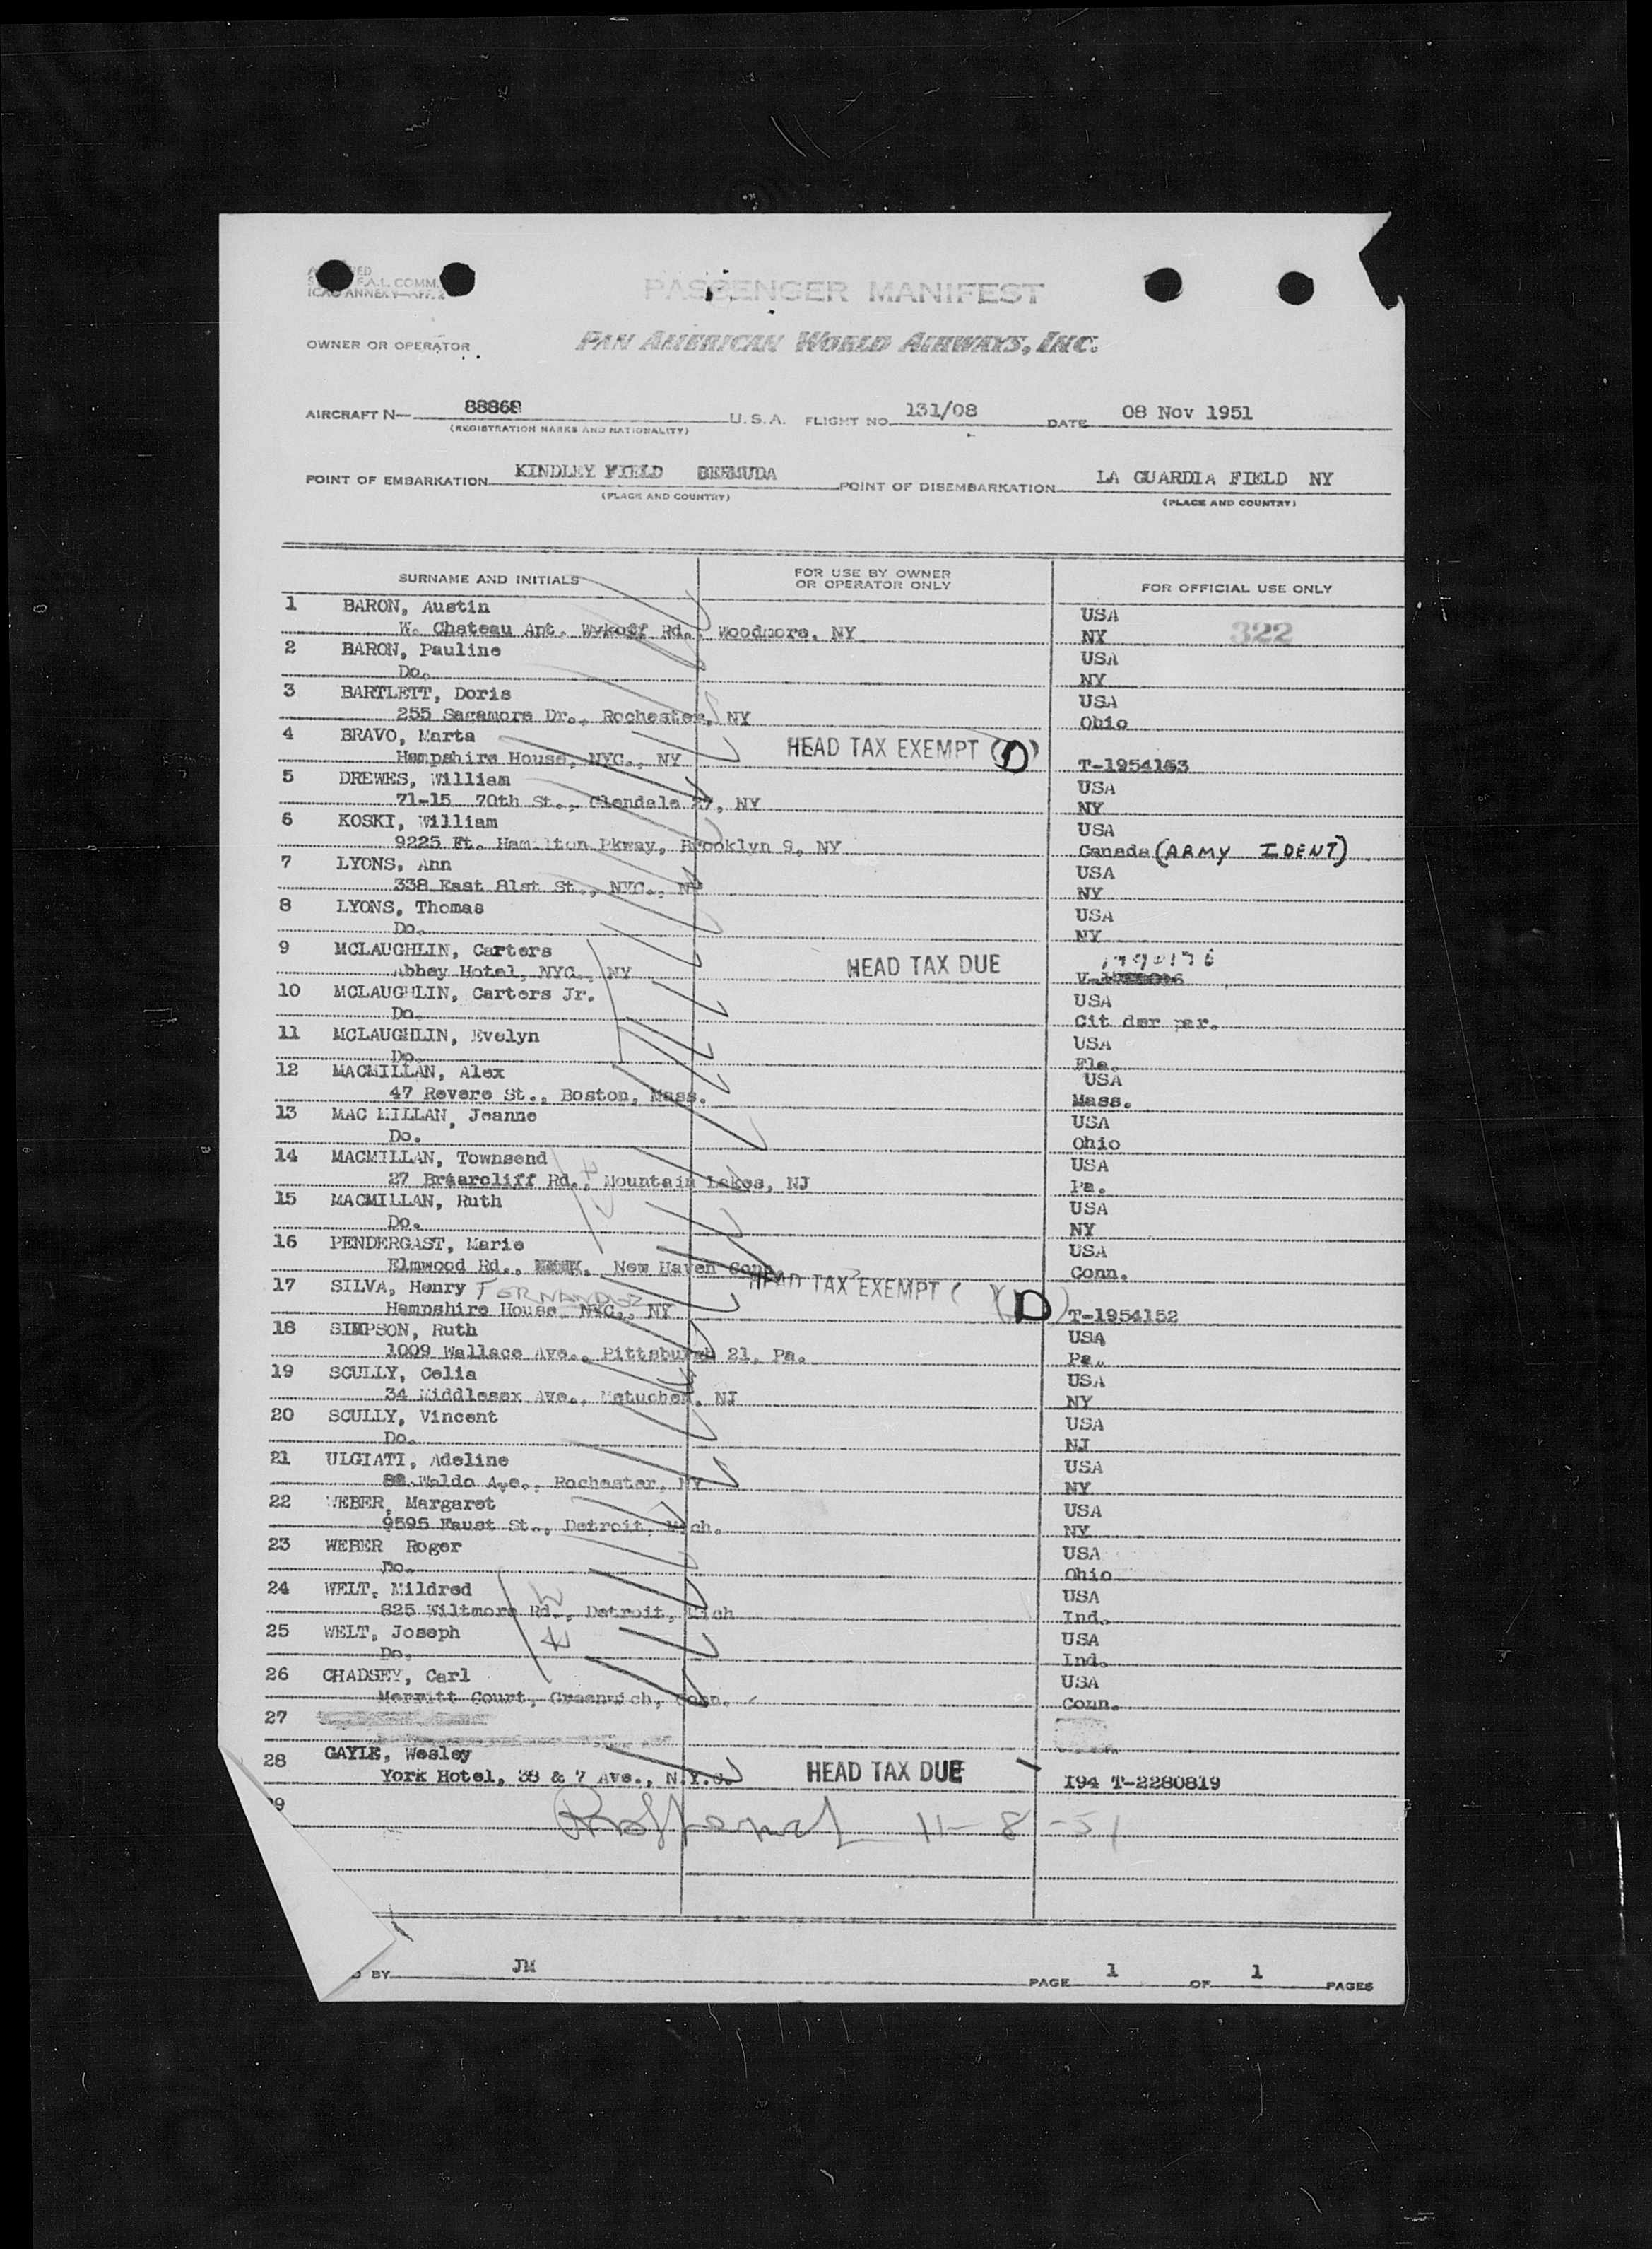 PASSENGER MANIFEST
OWNER OR OPERATOR PAN AMERICAN WORLD AIRWAYS, INC.
AIRCRAFT N— 88868 U.S.A. FLIGHT NO. 131/08 DATE 08 Nov 1951
(REGISTRATION MARKS AND NATIONALITY)
POINT OF EMBARKATION KINDLEY FIELD BERMUDA POINT OF DISEMBARKATION LA GUARDIA FIELD NY
(PLACE AND COUNTRY) (PLACE AND COUNTRY)
SURNAME AND INITIALS FOR USE BY OWNER OR OPERATOR ONLY FOR OFFICIAL USE ONLY
1 BARON, Austin USA
W. Chateau Apt. Wykoff Rd., Woodmore, NY NY 322
2 BARON, Pauline USA
Do. NY
3 BARTLETT, Doris USA
255 Sagamore Dr., Rochester, NY Ohio
4 BRAVO, Marta HEAD TAX EXEMPT (D)
Hampshire House, NYC., NY T-1954153
5 DREWES, William USA
71-15 70th St., Glendale 27, NY NY
6 KOSKI, William USA
9225 Ft. Hamilton Pkway, Brooklyn 9, NY Canada (ARMY IDENT)
7 LYONS, Ann USA
338 East 81st St., NYC., NY NY
8 LYONS, Thomas USA
Do. NY
9 MCLAUGHLIN, Carters HEAD TAX DUE
Abbey Hotel, NYC., NY
10 MCLAUGHLIN, Carters Jr. USA
Do. Cit der par.
11 MCLAUGHLIN, Evelyn USA
Do. Fla.
12 MACMILLAN, Alex USA
47 Revere St., Boston, Mass. Mass.
13 MAC MILLAN, Jeanne USA
Do. Ohio
14 MACMILLAN, Townsend USA
27 Briarcliff Rd., Mountain Lakes, NJ Pa.
15 MACMILLAN, Ruth USA
Do. NY
16 PENDERGAST, Marie USA
Elmwood Rd., New Haven Conn. Conn.
17 SILVA, Henry FERNANDEZ HEAD TAX EXEMPT ( ) (D)
Hampshire House, NYC., NY T-1954152
18 SIMPSON, Ruth USA
1009 Wallace Ave., Pittsburgh 21, Pa. Pa.
19 SCULLY, Celia USA
34 Middlesex Ave., Metuchen, NJ NY
20 SCULLY, Vincent USA
Do. NJ
21 ULGIATI, Adeline USA
88 Waldo Ave., Rochester, NY NY
22 WEBER, Margaret USA
9595 Faust St., Detroit, Mich. NY
23 WEBER Roger USA
Do. Ohio
24 WELT, Mildred USA
825 Wiltmore Rd., Detroit, Mich Ind.
25 WELT, Joseph USA
Do. Ind.
26 CHADSEY, Carl USA
Merritt Court, Greenwich, Conn. Conn.
27
28 GAYLE, Wesley HEAD TAX DUE
York Hotel, 38 & 7 Ave., N.Y.C. I94 T-2280819
11-8-51
BY JM PAGE 1 OF 1 PAGES